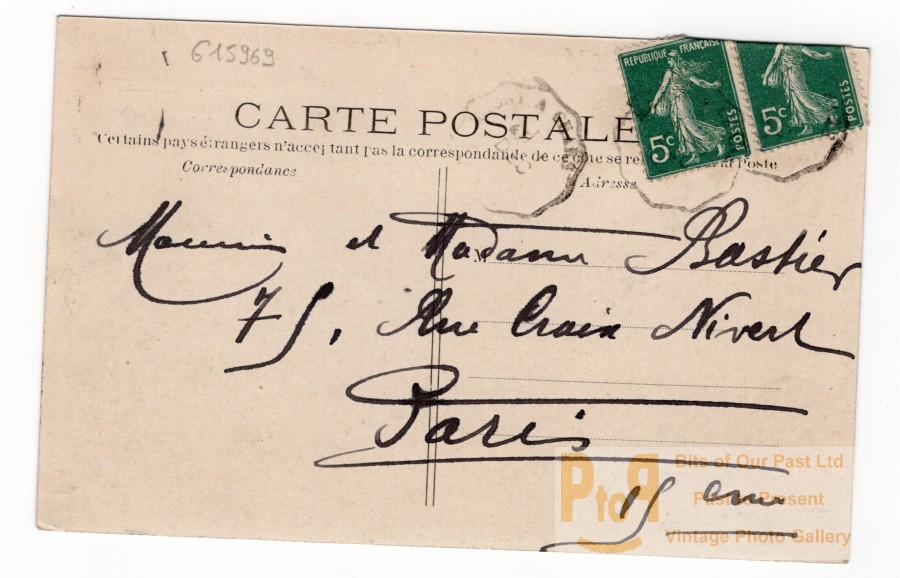 615969
REPUBLIQUE FRANÇAISE
5c
POSTES
5c
POSTES
CARTE POSTALE
Certains pays étrangers n'acceptant pas la correspondande de ce côté se re la Poste
Correspondance
Adresse
Monsieur et Madame Bastier
M
75, Rue Croix Nivert
Paris
15eme
PtoP
Bits of Our Past Ltd
Past to Present
Vintage Photo Gallery